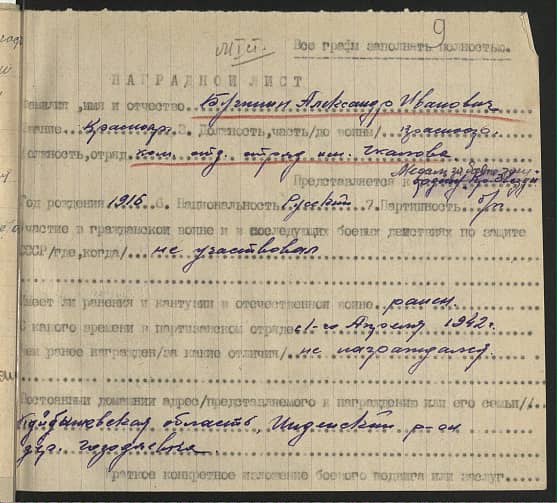 9
Все графы заполнять полностью.
НАГРАДНОЙ ЛИСТ
Фамилия ,имя и отчество Александр Иванович
Звание Красноар. 3. Должность,часть/до войны/
Должность,отряд ком. отд. отряд им. Чкалова
Представляется к Медаль за
ордену Кр. Звезды
Год рождения 1916 6. Национальность Русский 7. Партийность б/п
участие в гражданской войне и в последующих боевых действиях по защите
СССР/где,когда/ не участвовал
Имеет ли ранения и кантузии в отечественной войне ранен.
С какого времени в партизанском отряде с 1-го Апреля 1942г.
Чем ранее награжден/за какие отличия/ не награждался
Постоянный домашний адрес/представляемого к награждению или его семьи/
Куйбышевская область, р-он
дер.
Краткое конкретное изложение боевого подвига или заслуг